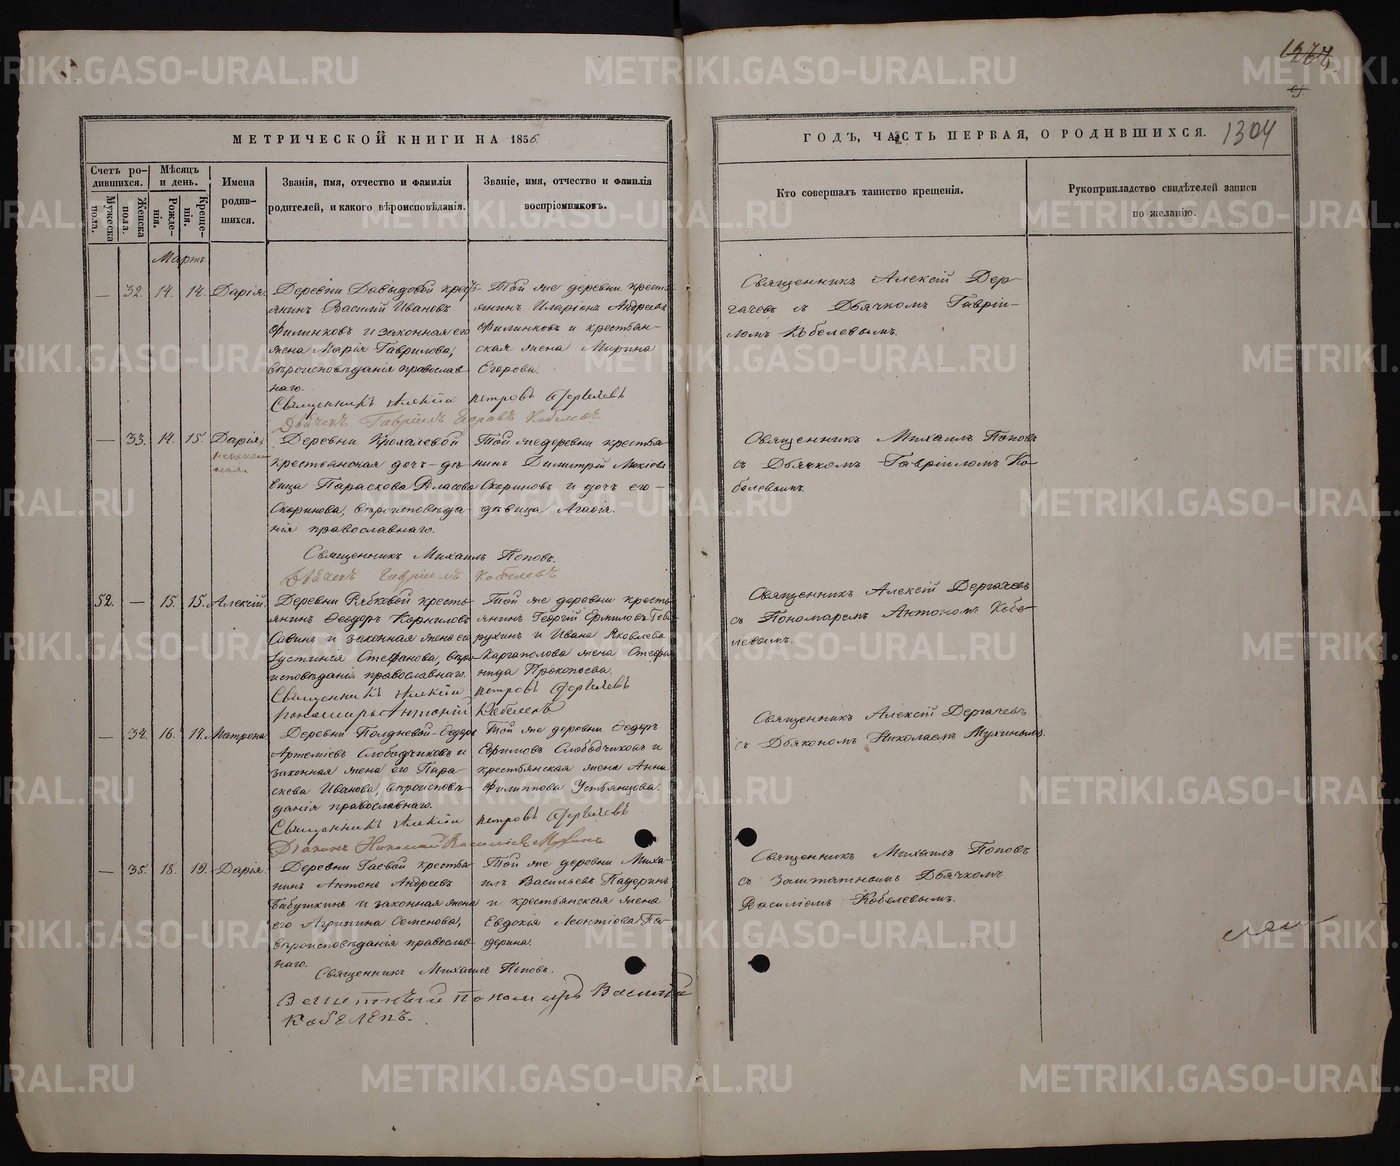 МЕТРИЧЕСКОЙ КНИГИ НА 1856
Счетъ родившихся.
Мужеска пола.
Женска пола.
Мѣсяцъ и день.
Рожденія.
Крещенія.
Имена родившихся.
Званія, имя, отчество и фамилія родителей, и какого вѣроисповѣданія.
Званіе, имя, отчество и фамилія воспріемниковъ.
Мартъ
— 32. 14. 14. Дарія.
Деревни Давыдовой крестьянинъ Василій Ивановъ
Филинковъ и законная его
жена Марія Гаврилова,
вѣроисповѣданія православнаго.
Той же деревни крестьянинъ Иларіонъ Андреевъ
Филинковъ и крестьянская жена Марина
Егорова.
Священникъ Алексій Петровъ Дергачевъ
Дьячекъ Гавріилъ Кобелевъ
— 33. 14. 15. Дарія,
незаконная
Деревни Крохалевой
крестьянская дочь-дѣвица Параскова Власова
Скоринова, вѣроисповѣданія православнаго.
Той же деревни крестьянинъ Димитрій
Скориновъ и дочь его
дѣвица Агафія.
Священникъ Михаилъ Поповъ.
Дьячекъ Гавріилъ Кобелевъ
52. — 15. 15. Алексій.
Деревни Рябковой крестьянинъ Ѳеодоръ Корниловъ
Савинъ и законная жена его
Іустинія Стефанова, вѣроисповѣданія православнаго.
Той же деревни крестьянинъ Георгій Ермиловъ
и Ивана Яковлева
Каргаполова жена Стефанида Прокопьева.
Священникъ Алексій Петровъ Дергачевъ
Пономарь Антоній Кобелевъ
— 34. 16. 17. Матрона
Деревни Полдневой Ѳедоръ
Артемьевъ Слободчиковъ и
законная жена его Параскева Иванова, вѣроисповѣданія православнаго.
Той же деревни Ѳедоръ
Ефимовъ Слободчиковъ и
крестьянская жена Анна
Филиппова Устьянцова.
Священникъ Алексій Петровъ Дергачевъ
Діаконъ Николай Мухинъ
— 35. 18. 19. Дарія.
Деревни Гаевой крестьянинъ Антонъ Андреевъ
Бабушкинъ и законная жена
его Агрипина Семенова,
вѣроисповѣданія православнаго.
Той же деревни Михаилъ Васильевъ Падеринъ
и крестьянская жена
Евдокія Леонтіева Падерина.
Священникъ Михаилъ Поповъ.
пономарь Василій
Кобелевъ.
1304
ГОДЪ, ЧАСТЬ ПЕРВАЯ, О РОДИВШИХСЯ.
Кто совершалъ таинство крещенія.
Рукоприкладство свидѣтелей записи
по желанію.
Священникъ Алексій Дергачевъ съ Дьячкомъ Гавріиломъ Кобелевымъ.
Священникъ Михаилъ Поповъ
съ Дьячкомъ Гавріиломъ Кобелевымъ.
Священникъ Алексій Дергачевъ
съ Пономаремъ Антономъ Кобелевымъ.
Священникъ Алексій Дергачевъ
съ Діакономъ Николаемъ Мухинымъ.
Священникъ Михаилъ Поповъ
съ Заштатнымъ Дьячкомъ
Василіемъ Кобелевымъ.
METRIKI.GASO-URAL.RU